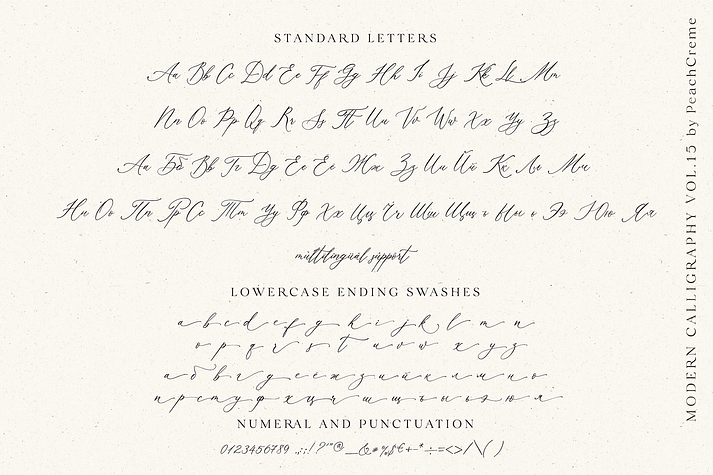 STANDARD LETTERS
Aa Bb Cc Dd Ee Ff Gg Hh Ii Jj Kk LL Mm
Nn Oo Pp Qq Rr Ss Tt Uu Vv Ww Xx Yy Zz
Аа Бб Вв Гг Дд Ее Ёё Жж Зз Ии Йй Кк Лл Мм
Нн Оо Пп Рр Сс Тт Уу Фф Хх Цц Чч Шш Щщ ь Ыы ъ Ээ Юю Яя
multilingual support
LOWERCASE ENDING SWASHES
a b c d e f g h i j k l m n
o p q r s t u v w x y z
а б в г д е ё ж з и й к л м н о
п р с т у ф х ц ч ш щ ъ ы ь э ю я
NUMERAL AND PUNCTUATION
0123456789 .,:;! ?'"@ _&#%$€+-*÷=<>/\()
MODERN CALLIGRAPHY VOL.15 by PeachCreme